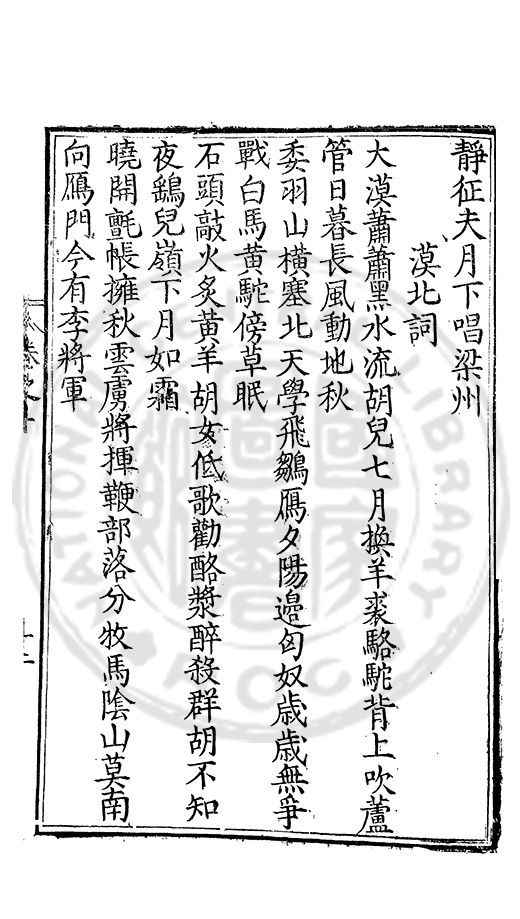 靜征夫月下唱梁州
漠北詞
大漠蕭蕭黑水流胡兒七月換羊裘駱駝背上吹蘆
管日暮長風動地秋
委羽山橫塞北天學飛鶵鴈夕陽邉匈奴歳歳無爭
戰白馬黃駝傍草眠
石頭敲火炙黃羊胡女低歌勸酪漿醉殺群胡不知
夜鷂兒嶺下月如霜
曉開氈帳擁秋雲虜將揮鞭部落分牧馬陰山莫南
向鴈門今有李將軍
NATIONAL
LIBRARY
ROC